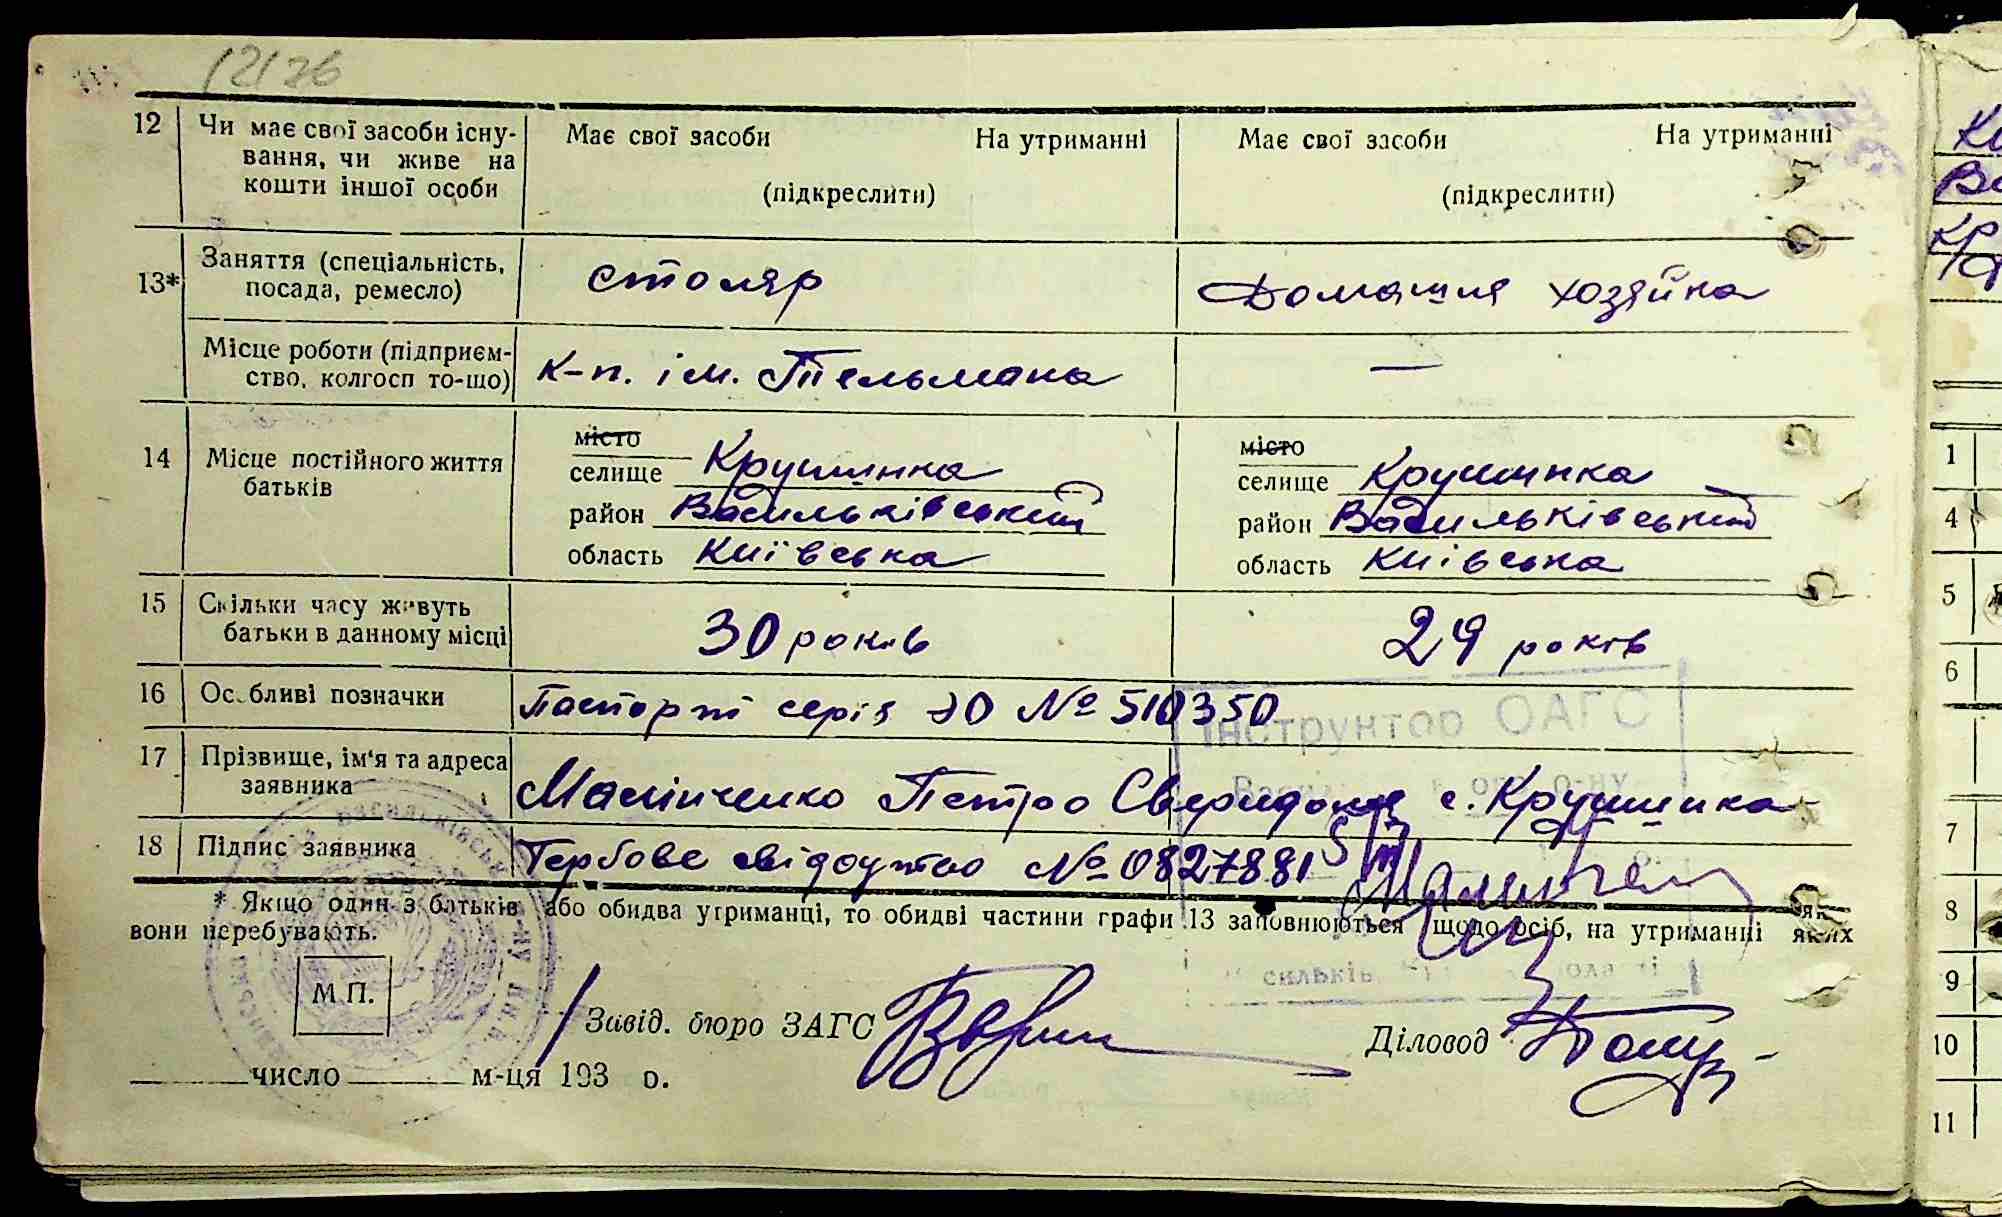 12136
12 Чи має свої засоби існу- Має свої засоби На утриманні Має свої засоби На утриманні
вання, чи живе на
кошти іншої особи (підкреслити) (підкреслити)
13* Заняття (спеціальність, столяр Домашня хозяйка
посада, ремесло)
Місце роботи (підприєм- к-п. ім. Тельмана —
ство, колгосп то-що)
14 Місце постійного життя місто місто
батьків селище Крушинка селище Крушинка
район Васильківський район Васильківський
область Київська область Київська
15 Скільки часу живуть 30 років 29 років
батьки в данному місці
16 Особливі позначки Паспорт серія № 510350
Інструктор ОАГС
17 Прізвище, ім'я та адреса
заявника Малінченко Петро Свиридон с. Крушинка
18 Підпис заявника Гербове свідоцтво № 0827881
* Якщо один з батьків або обидва утриманці, то обидві частини графи 13 заповнюються щодо осіб, на утриманні яких
вони перебувають.
М.П.
Завід. бюро ЗАГС Діловод
число м-ця 193 о.
1
4
5
6
7
8
9
10
11